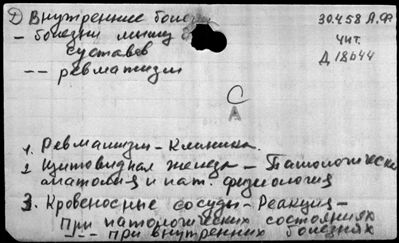 2) Внутренние болезни
30.458 А.Ф
- болезни мышц и
суставов
чит.
Д 18644
-- ревматизм
С
А
1. Ревматизм - Клиника.
2 Щитовидная железа - Патологическая
анатомия и пат. физиология
3. Кровеносные сосуды - Реакция -
при патологических состояниях
-- при внутренних болезнях